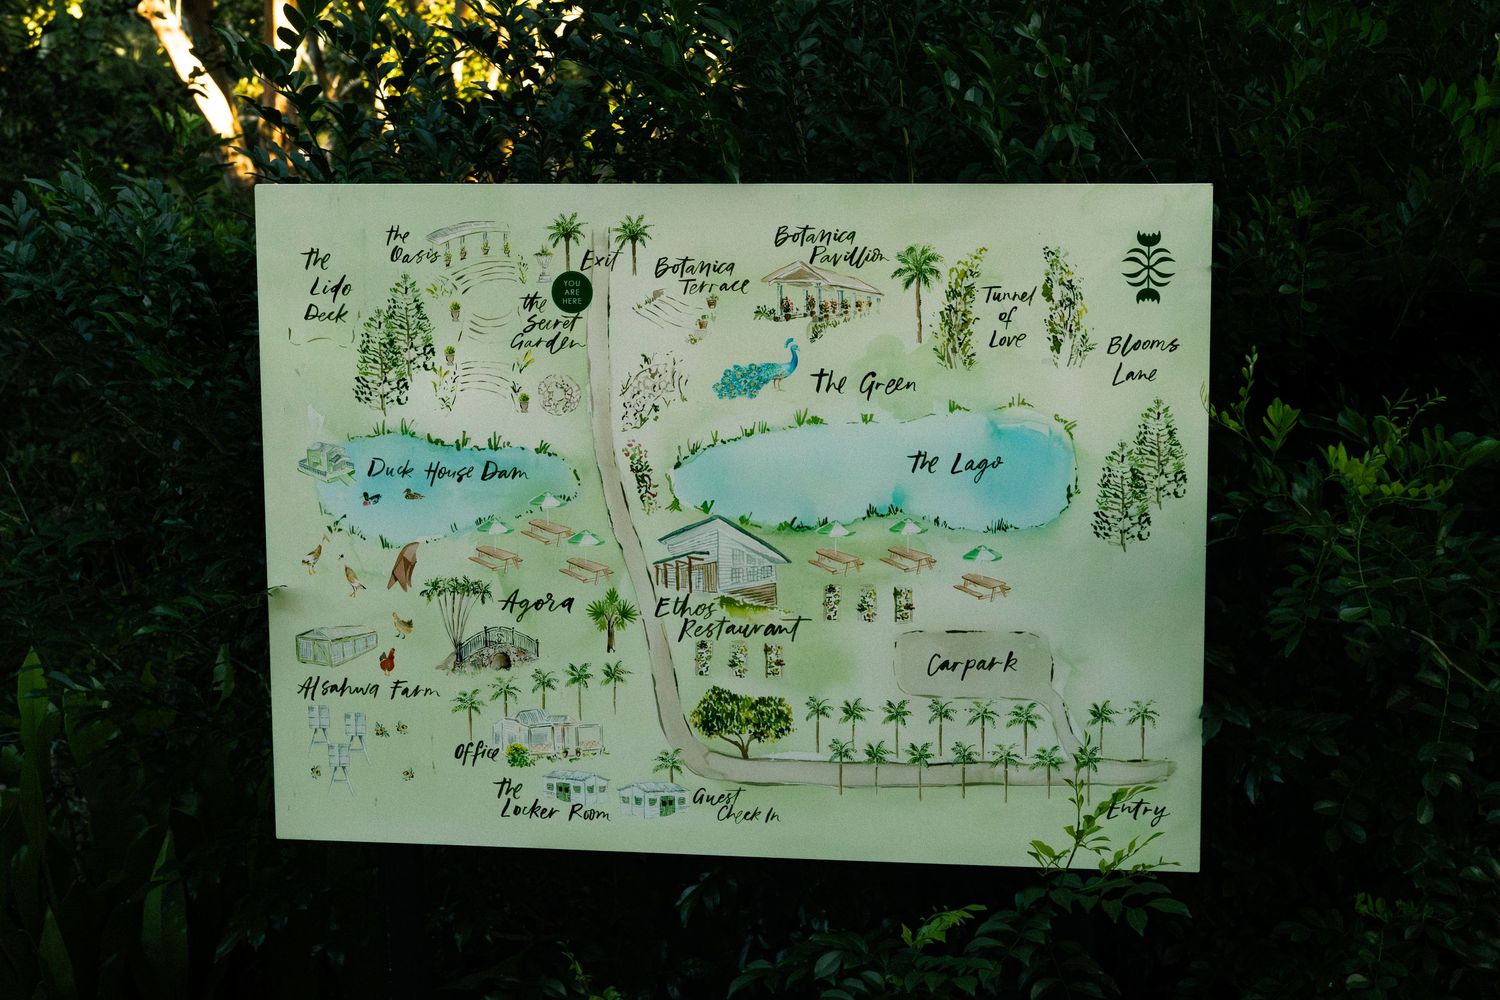 The
Lido
Deck
the
Oasis
Exit
YOU
ARE
HERE
the
Secret
Garden
Botanica
Terrace
Botanica
Pavillion
Tunnel
of
Love
Blooms
Lane
the Green
Duck House Dam
the Lago
Agora
Ethos
Restaurant
Carpark
Alsahwa Farm
Office
The
Locker Room
Guest
Check In
Entry